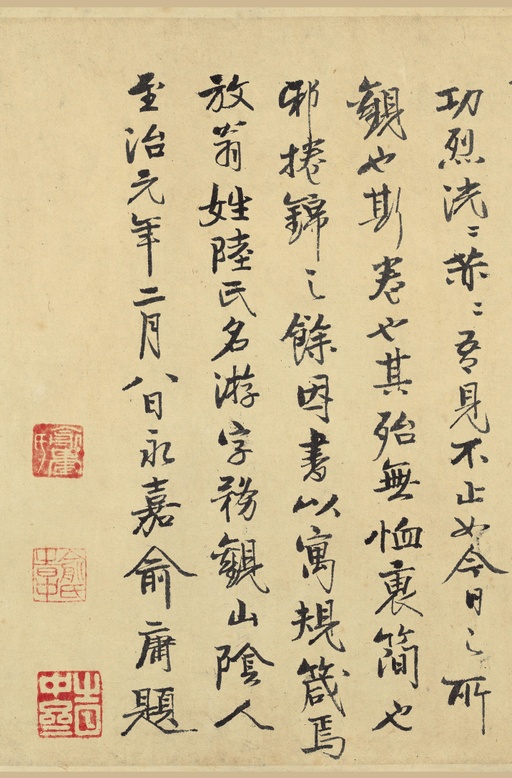 功烈洸〻赫〻吾見不止如今日之所
觀也斯卷也其殆無恤衷簡也
邪捲錦之餘因書以寓規箴焉
放翁姓陸氏名游字務觀山陰人
至治元年二月八日永嘉俞庸題